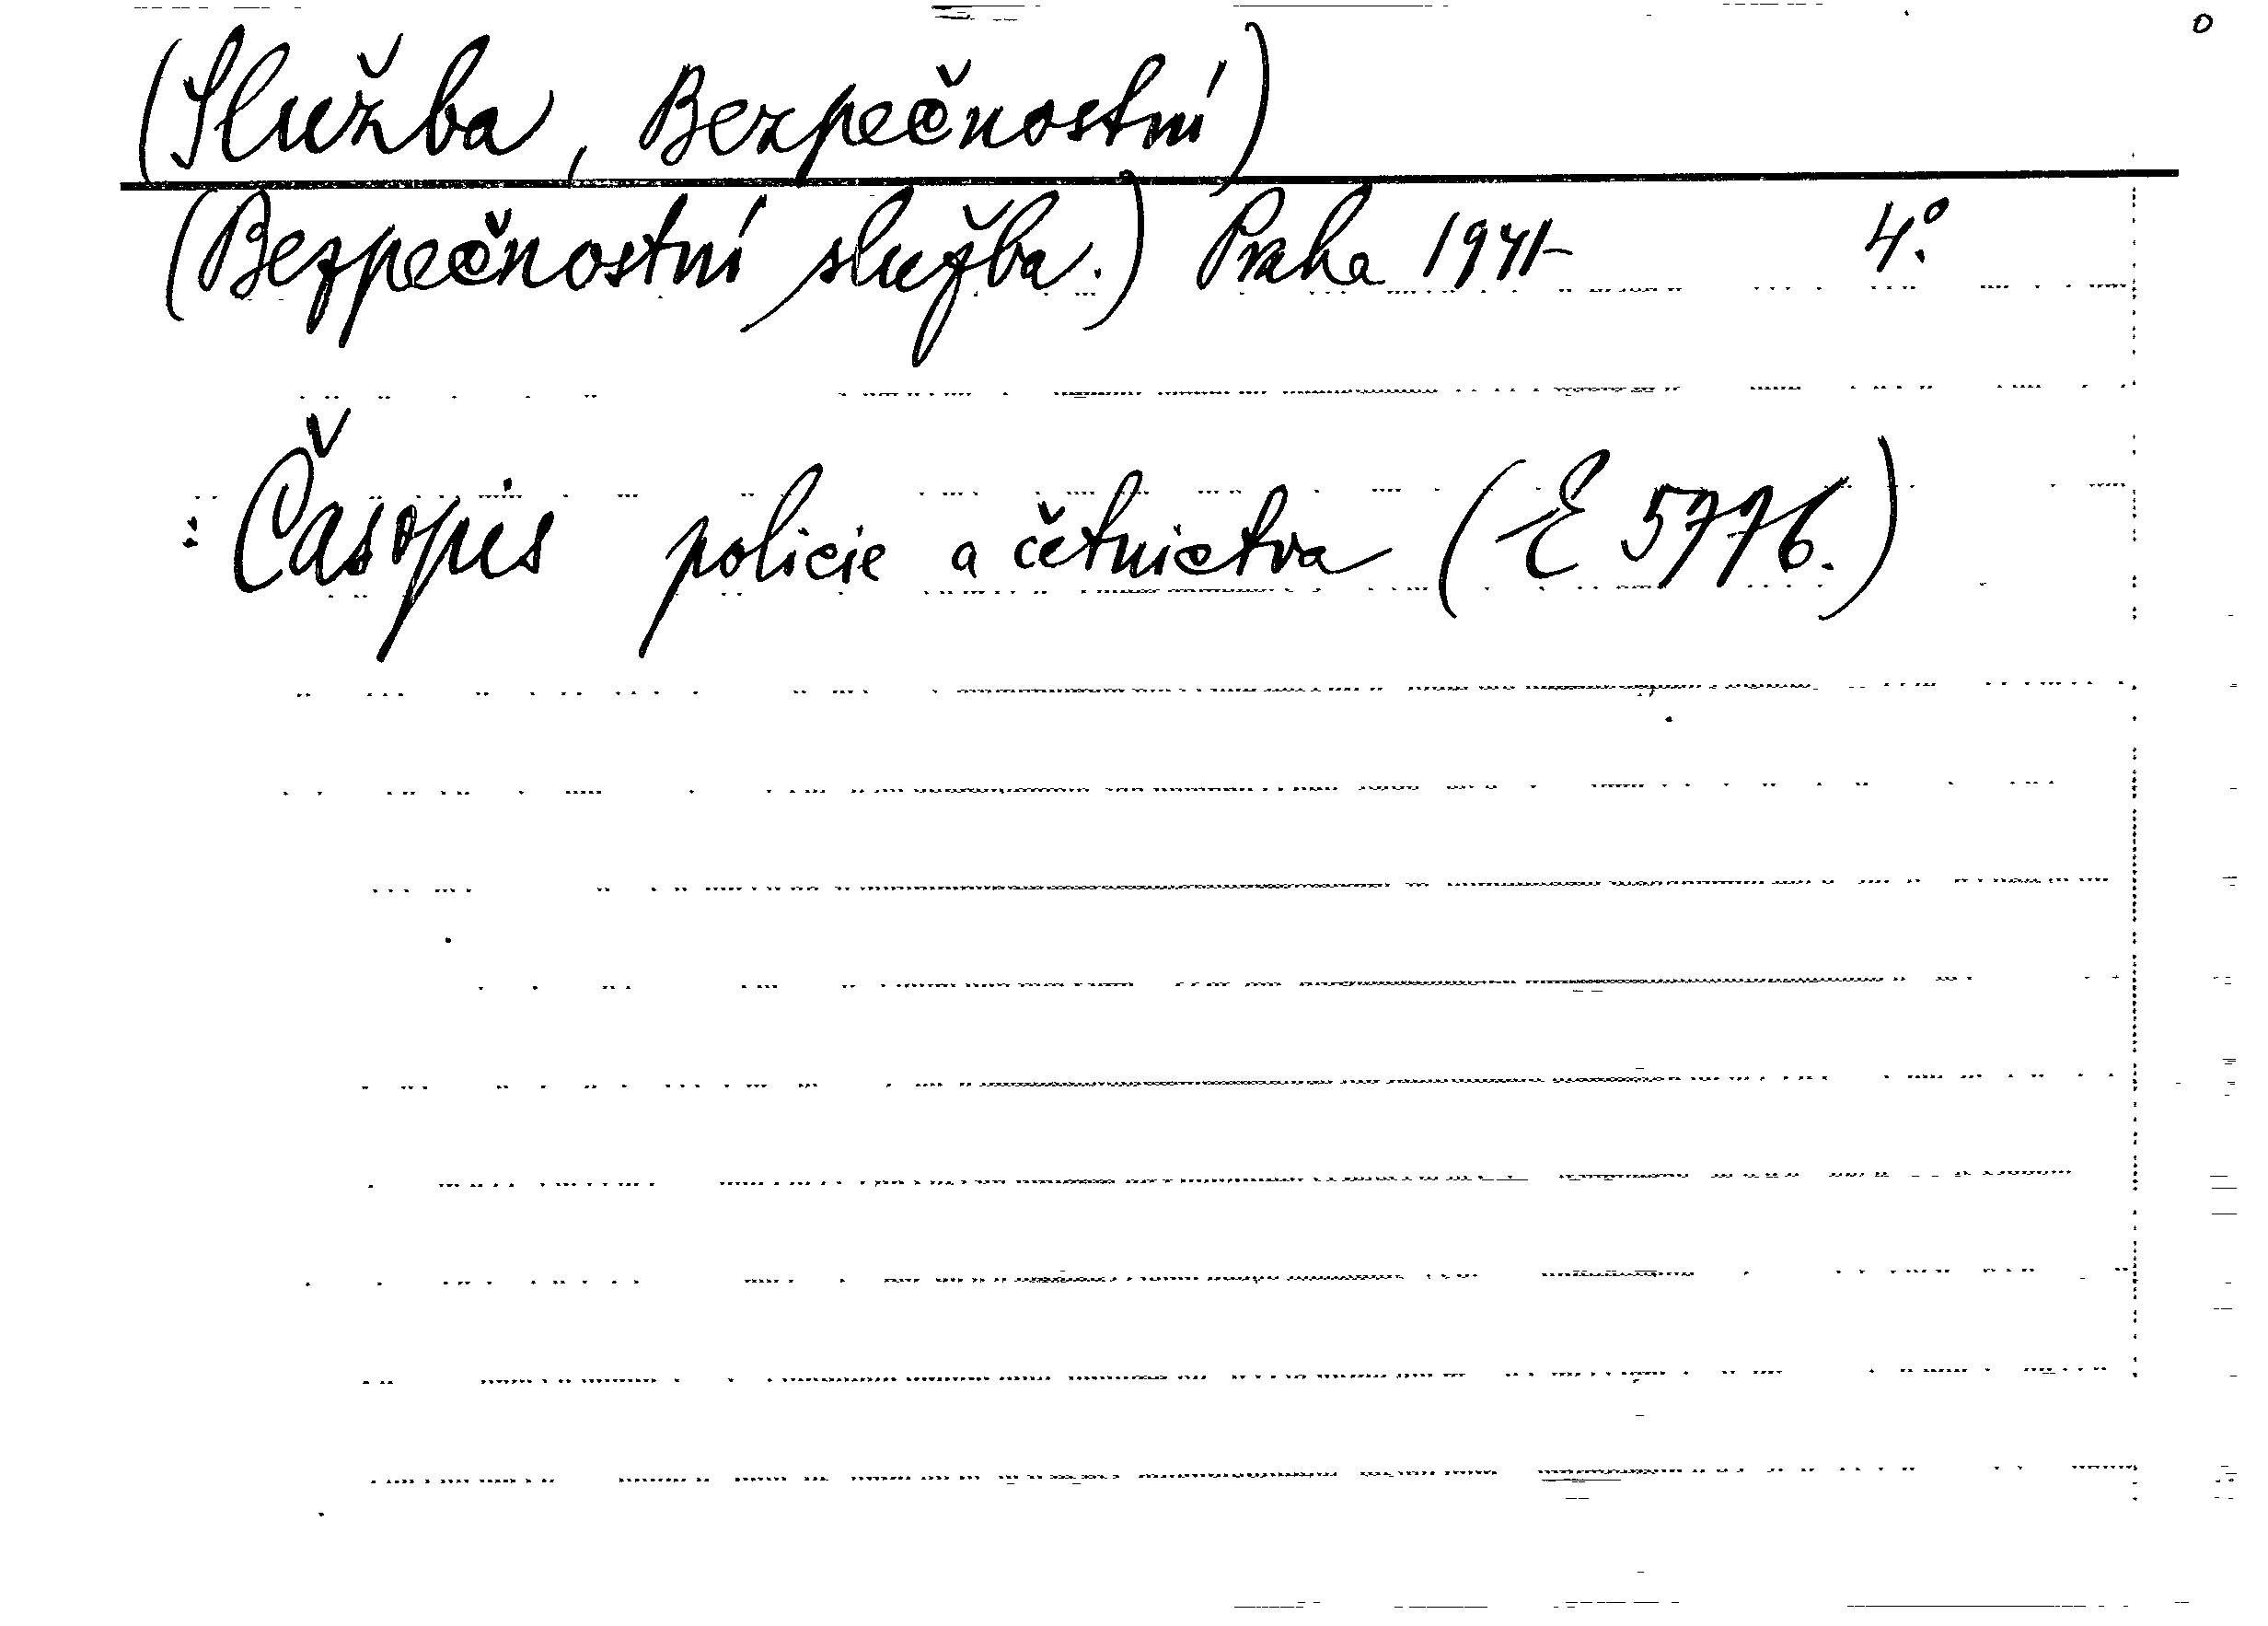 (Služba, Bezpečnostní)
(Bezpečnostní služba.) Praha 1941- 4.°
: Časopis policie a četnictva (E 5776.)